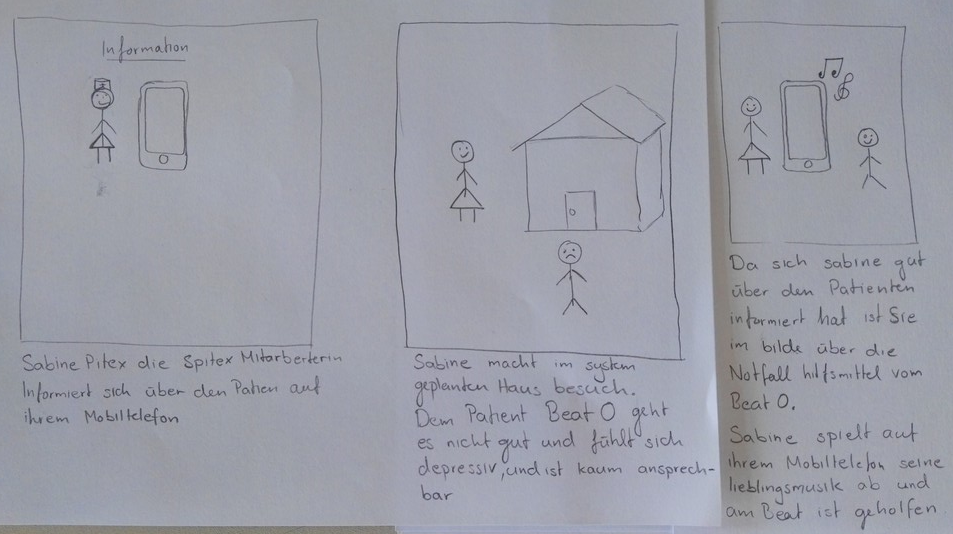 Information
Sabine Pitex die Spitex Mitarbeiterin
Informiert sich über den Patien auf
ihrem Mobiltelefon
Sabine macht im system
geplanten Haus besuch.
Dem Patient Beat O geht
es nicht gut und fühlt sich
depressiv, und ist kaum ansprech-
bar
Da sich sabine gut
über den Patienten
informiert hat ist Sie
im bilde über die
Notfall hilfsmittel vom
Beat O.
Sabine spielt auf
ihrem Mobiltelefon seine
lieblingsmusik ab und
am Beat ist geholfen